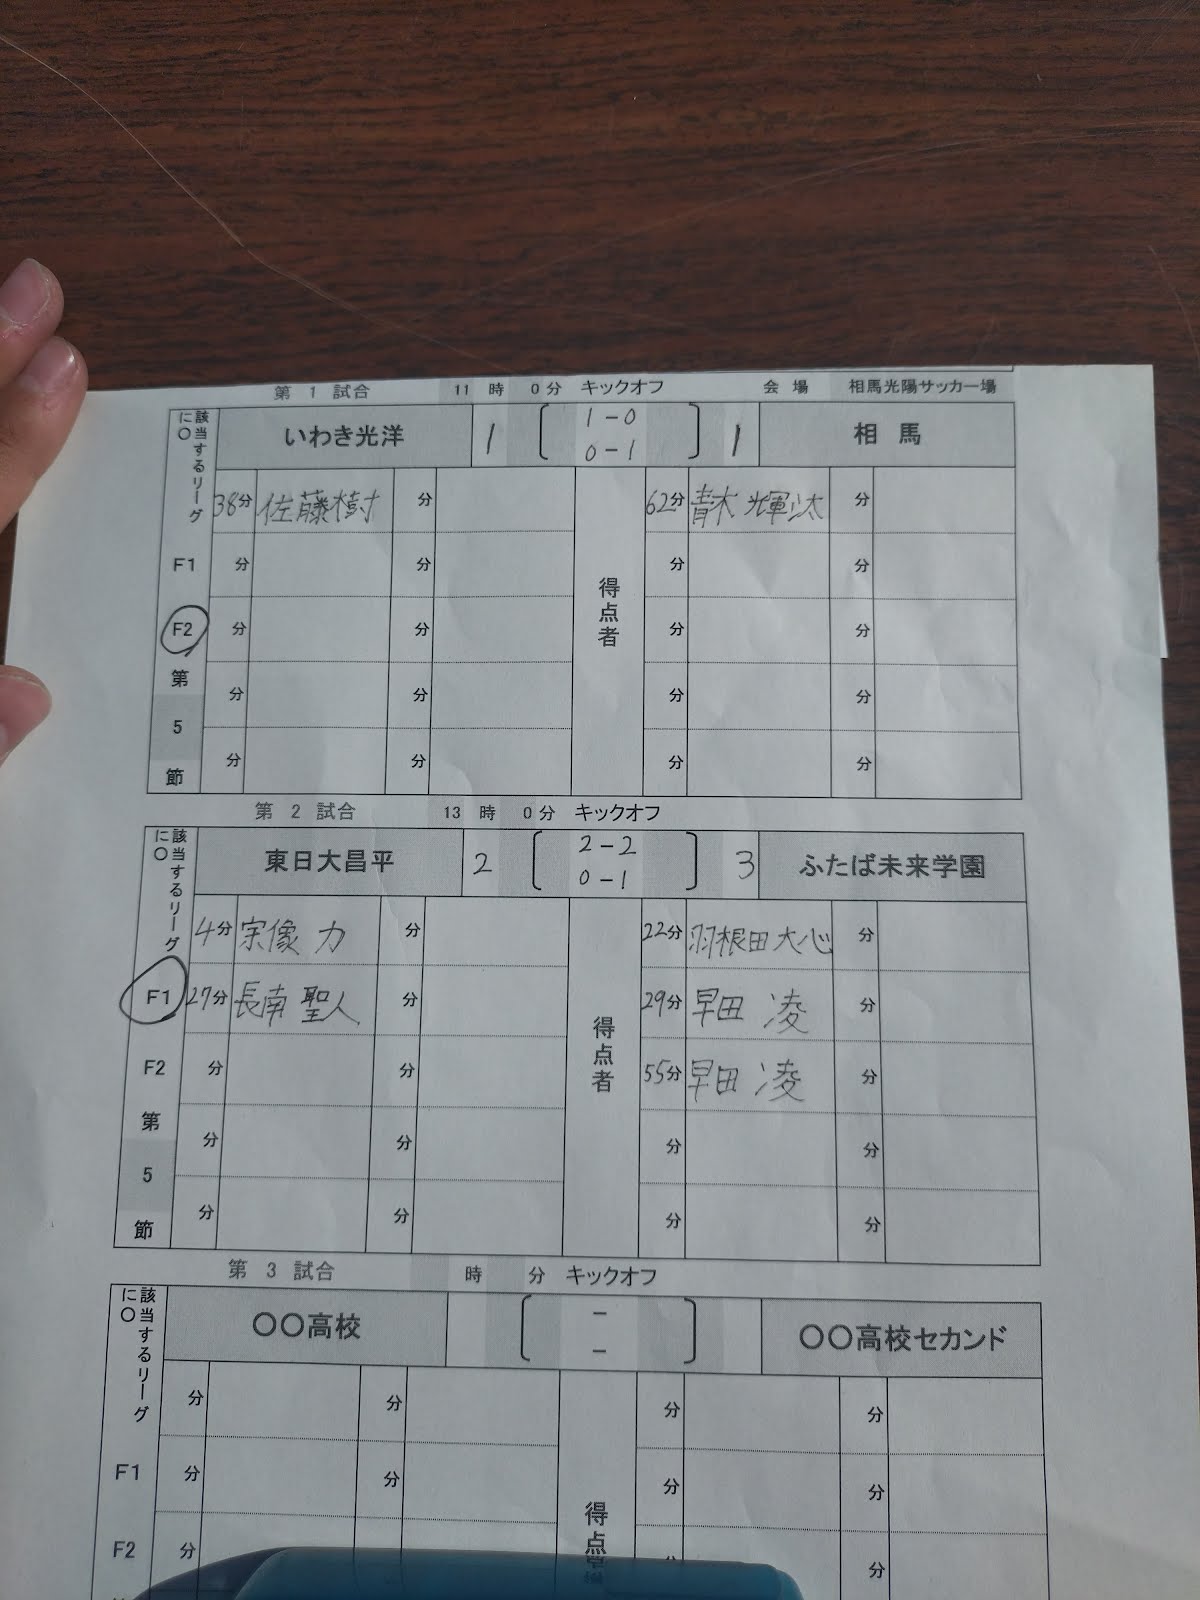 第 1 試合 11 時 0分 キックオフ 会 場 相馬光陽サッカー場
該当するリーグに〇
いわき光洋 1 [ 1-0 0-1 ] 1 相 馬
38分 佐藤樹 分 得点者 62分 青木 輝汰 分
F1 分 分 分 分
F2 分 分 分 分
第 分 分 分 分
5
節 分 分 分 分
第 2 試合 13 時 0分 キックオフ
該当するリーグに〇
東日大昌平 2 [ 2-2 0-1 ] 3 ふたば未来学園
4分 宗像 力 分 得点者 22分 羽根田 大心 分
F1 27分 長南 聖人 分 29分 早田 凌 分
F2 分 分 55分 早田 凌 分
第 分 分 分 分
5
節 分 分 分 分
第 3 試合 時 分 キックオフ
該当するリーグに〇
〇〇高校 [ - - ] 〇〇高校セカンド
分 分 得点 分 分
F1 分 分 分 分
F2 分 分